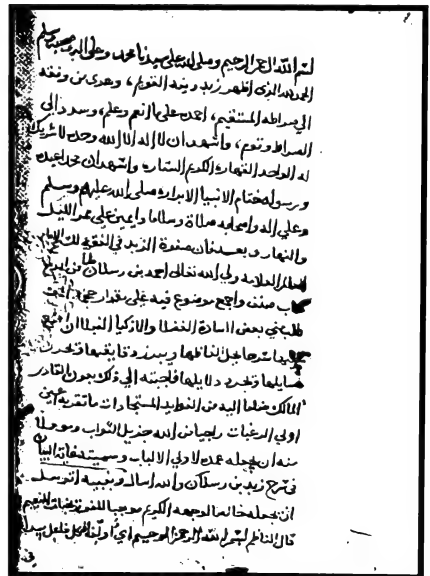 بسم الله الرحمن الرحيم وصلى الله على سيدنا محمد وعلى اله وصحبه وسلم
الحمد لله الذي اظهر زبد دينه القويم، وهدى من وفقه
الى صراطه المستقيم، احمده على ما انعم وعلم، وسدد الى
الصراط وقوم، واشهد ان لا اله الا الله وحده لا شريك
له الواحد القهار، الكريم الستار، واشهد ان محمدا عبده
ورسوله ختام الانبيا الابرار، صلى الله عليه وسلم
وعلى اله واصحابه صلاة وسلاما دايمين على ممر الليل
والنهار وبعد فان صفوة الزبد في الفقه للشيخ الامام
العالم العلامة ولي الله تعالى احمد بن رسلان من
كتاب صنف واجمع موضوع فيه على مقدار حجمه
طلب مني بعض السادة الفضلا والاذكيا النبلا ان
شرحا يحل الفاظها ويبرز دقايقها ويحرر
مسايلها ويجود دلايلها فاجبته الى ذلك بعون القادر
المالك ضاما اليه من الفوايد المستجادات ما تقر به اعين
اولي الرغبات راجيا من الله جزيل الثواب ومؤملا
منه ان يجعله عمدة لاولي الالباب وسميته غاية البيان
في شرح زبد بن رسلان والله اسال وبنبيه اتوسل
ان يجعله خالصا لوجهه الكريم موجبا للفوز بجنات النعيم
قال الناظم بسم الله الرحمن الرحيم اي